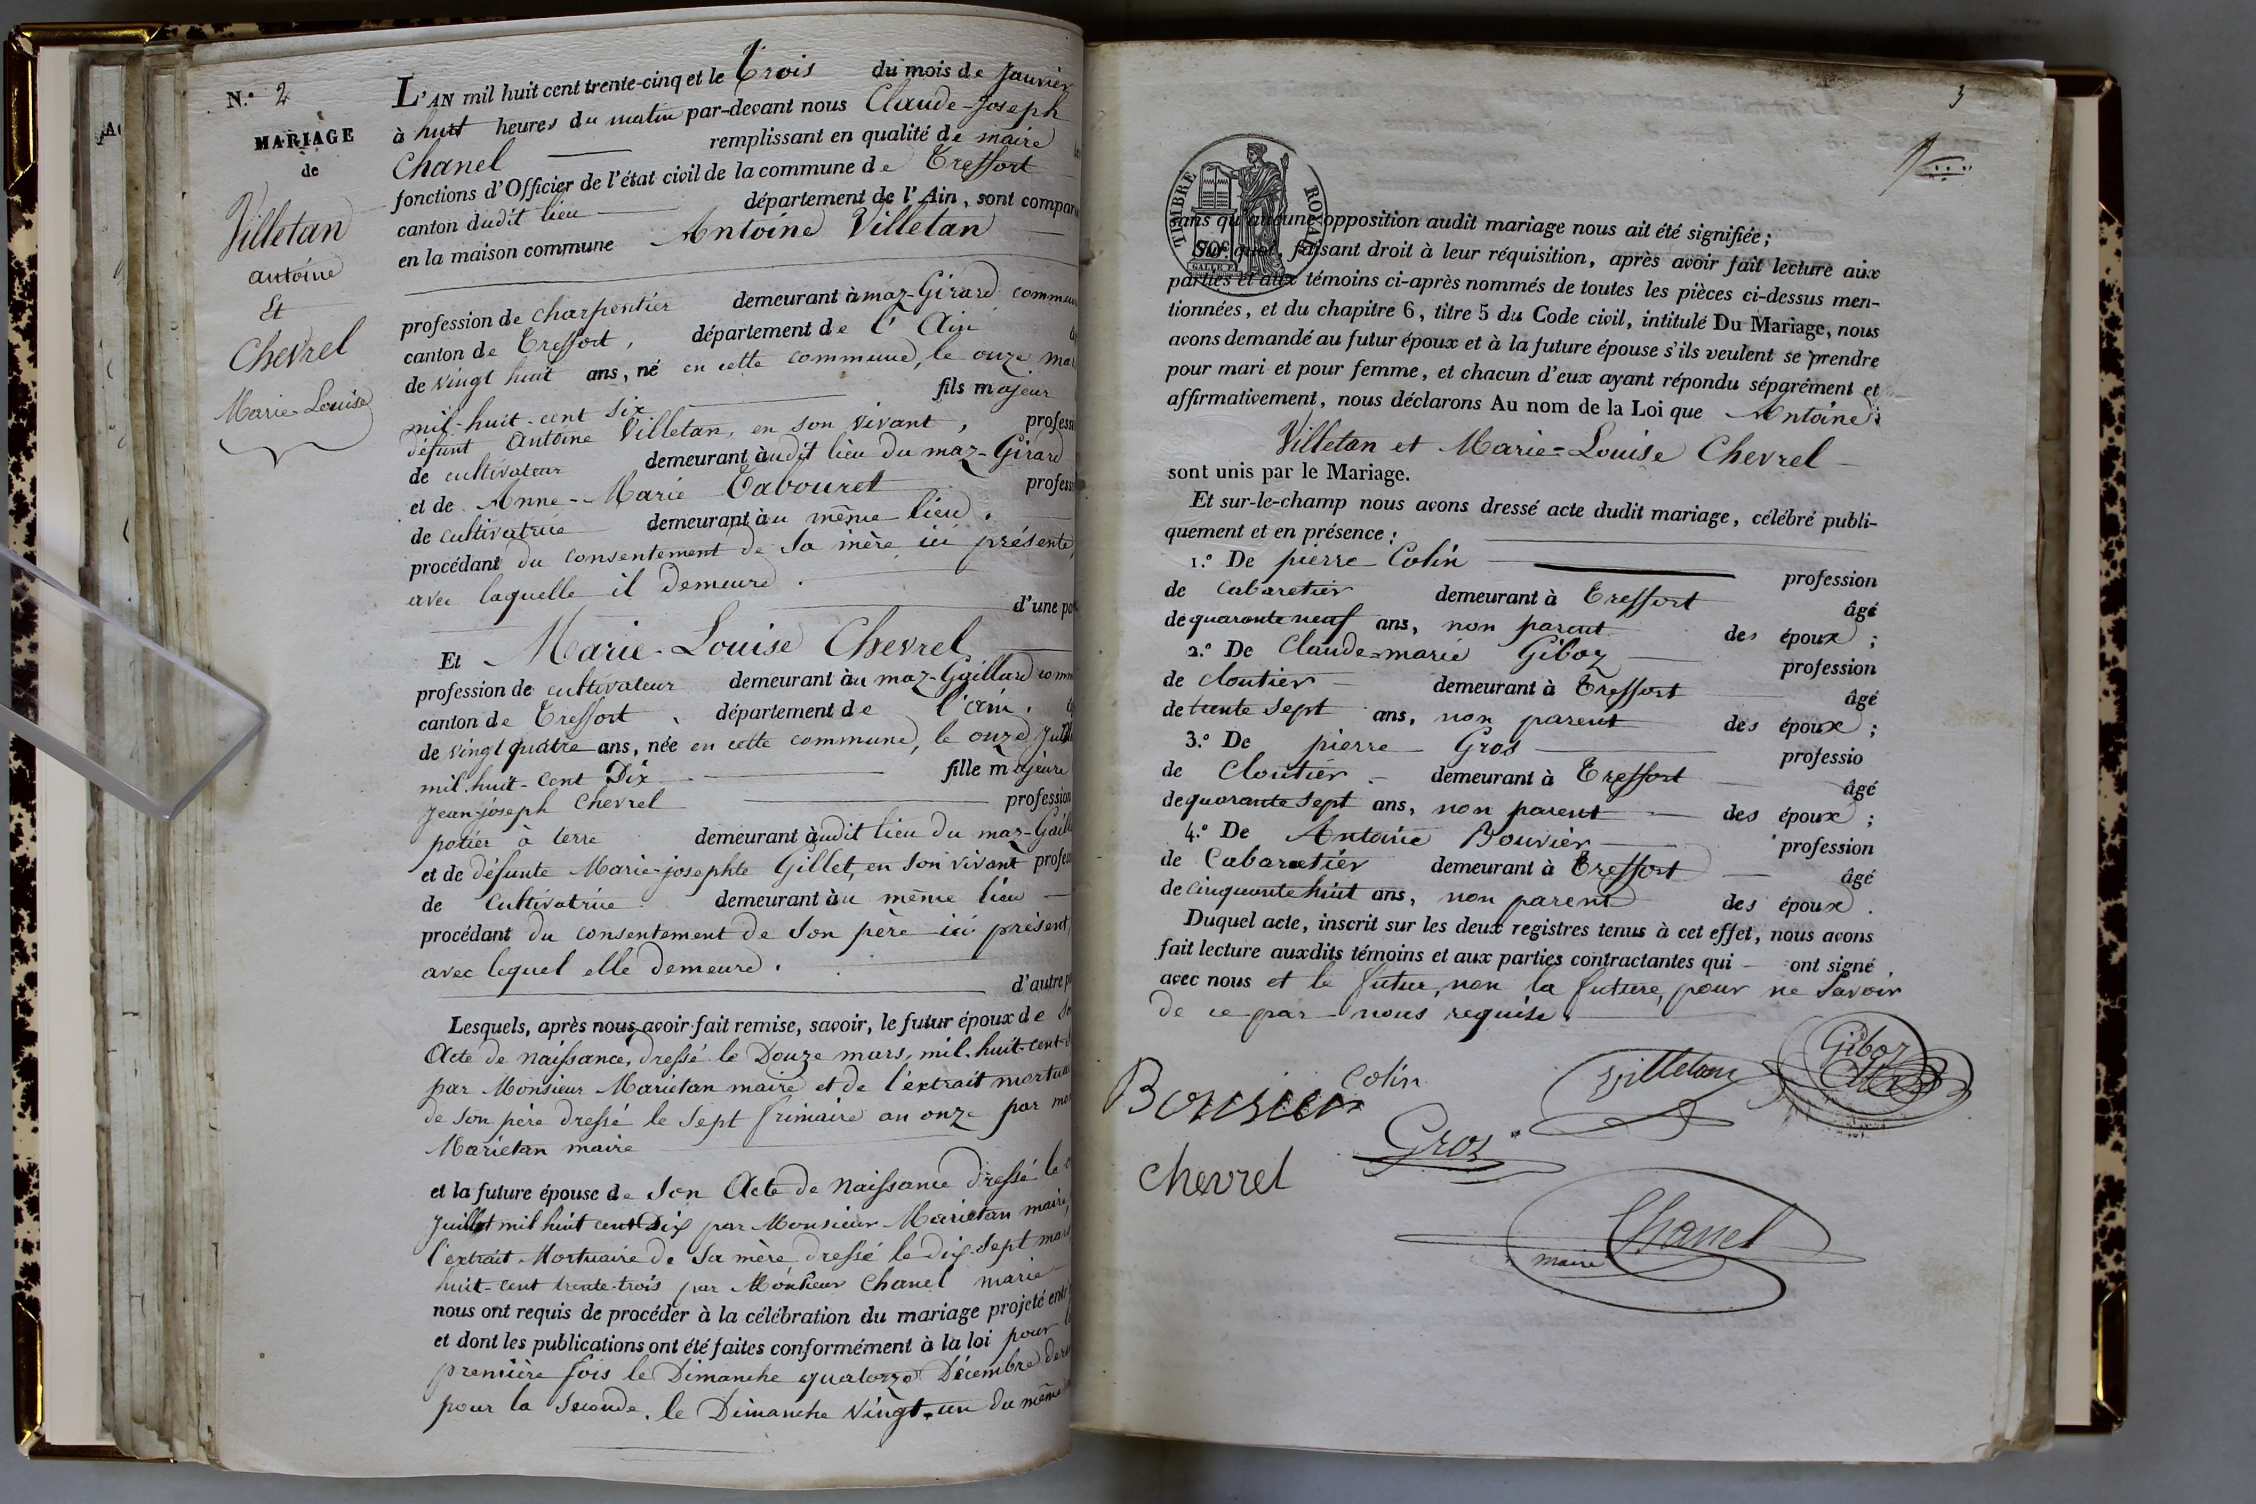 N.° 2
MARIAGE
de
Villetan
antoine
Et
Chevrel
Marie-Louise
L'AN mil huit cent trente-cinq et le Trois du mois de Janvier
à huit heures du matin par-devant nous Claude-Joseph
Chanel remplissant en qualité de maire
fonctions d'Officier de l'état civil de la commune de Treffort
canton dudit lieu département de l'Ain, sont compar
en la maison commune Antoine Villetan
profession de charpentier demeurant à maz-Girard commun
canton de Treffort, département de l'Ain
de vingt huit ans, né en cette commune, le onze mar
mil-huit-cent six fils majeur
défunt Antoine Villetan, en son vivant, profess
de cultivateur demeurant àudit lieu du maz-Girard
et de Anne-Marie Tabouret profess
de cultivatrice demeurant àu même lieu.
procédant du consentement de sa mère ici présente,
avec laquelle il demeure.
d'une pa
Et Marie-Louise Chevrel
profession de cultivateur demeurant àu maz-Gaillard comm
canton de Treffort, département de l'ain.
de vingt quatre ans, née en cette commune, le onze Juil
mil-huit-cent Dix fille majeure
Jean-joseph Chevrel profession
potier à terre demeurant àudit lieu du maz-Gaill
et de défunte Marie-josephte Gillet, en son vivant profes
de cultivatrice demeurant àu même lieu
procédant du consentement de son père ici présent,
avec lequel elle demeure.
d'autre p
Lesquels, après nous avoir fait remise, savoir, le futur époux de
Acte de naissance, dressé le Douze mars, mil-huit-cent-
par Monsieur Marietan maire et de l'extrait mortua
de son père dressé le sept frimaire an onze par
Marietan maire
et la future épouse de son Acte de Naissance dressé le
Juillet mil huit cent Dix par Monsieur Marietan maire,
l'extrait Mortuaire de sa mère dressé le dix-sept mars
huit-cent trente-trois par Monsieur Chanel marie
nous ont requis de procéder à la célébration du mariage projeté entr
et dont les publications ont été faites conformément à la loi pour
première fois le Dimanche quatorze Décembre der
pour la seconde, le Dimanche vingt-un du même
3
TIMBRE ROYAL
70c
sans qu'aucune opposition audit mariage nous ait été signifiée;
Sur quoi, faisant droit à leur réquisition, après avoir fait lecture aux
parties et aux témoins ci-après nommés de toutes les pièces ci-dessus men-
tionnées, et du chapitre 6, titre 5 du Code civil, intitulé Du Mariage, nous
avons demandé au futur époux et à la future épouse s'ils veulent se prendre
pour mari et pour femme, et chacun d'eux ayant répondu séparément et
affirmativement, nous déclarons Au nom de la Loi que Antoine
Villetan et Marie-Louise Chevrel
sont unis par le Mariage.
Et sur-le-champ nous avons dressé acte dudit mariage, célébré publi-
quement et en présence:
1.° De pierre Colin profession
de Cabaretier demeurant à Treffort âgé
de quarante neuf ans, non parent des époux;
2.° De Claude-marie Giboz profession
de cloutier demeurant à Treffort âgé
de trente sept ans, non parent des époux;
3.° De pierre Gros professio
de Cloutier demeurant à Treffort âgé
de quarante sept ans, non parent des époux;
4.° De Antoine Bouvier profession
de Cabaretier demeurant à Treffort âgé
de cinquante huit ans, non parent des époux.
Duquel acte, inscrit sur les deux registres tenus à cet effet, nous avons
fait lecture auxdits témoins et aux parties contractantes qui ont signé
avec nous et le futur, non la future, pour ne savoir
de ce par nous requise.
Giboz
Colin
Villetan
Bouvier
Gros
Chevrel
Chanel
maire